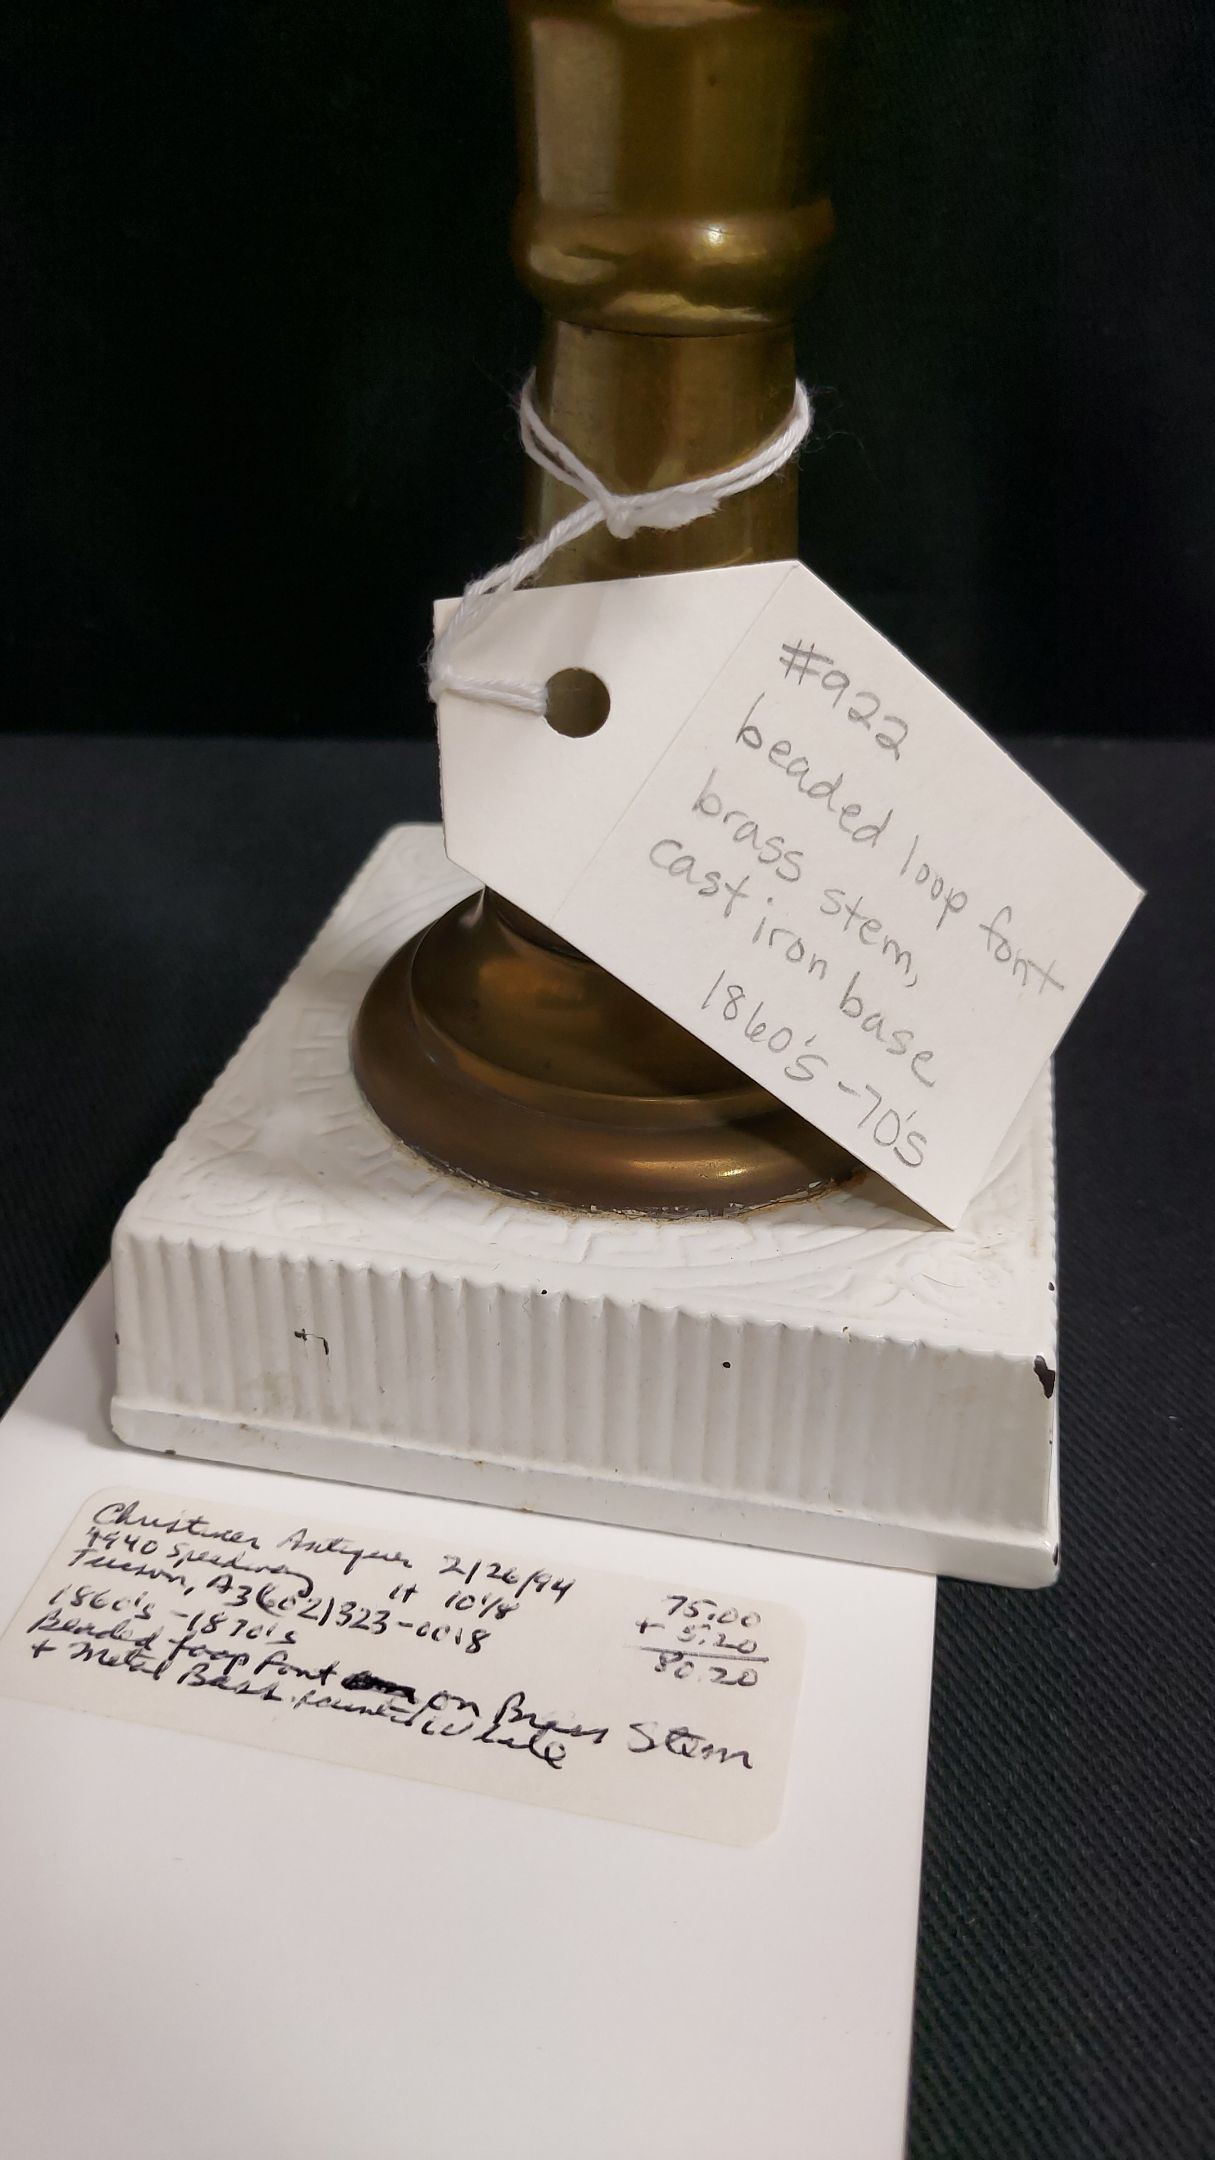 #922
beaded loop font
brass stem,
cast iron base
1860's-70's
Antiques 2/26/94
4940 Speedway Ht 10 1/8
Tucson, AZ (602) 323-0018
1860's-1870's
75.00
+ 5.20
80.20
Beaded Loop Font on Brass Stem
+ Metal Base painted White